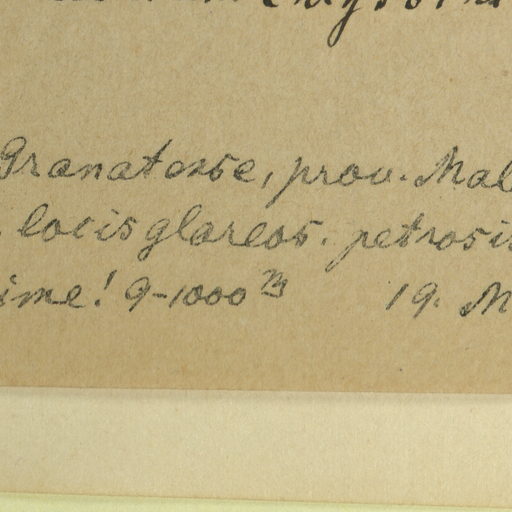 Granatense, prov. Mal
locis glareos. petrosis
ime! 9-1000 m 19. M